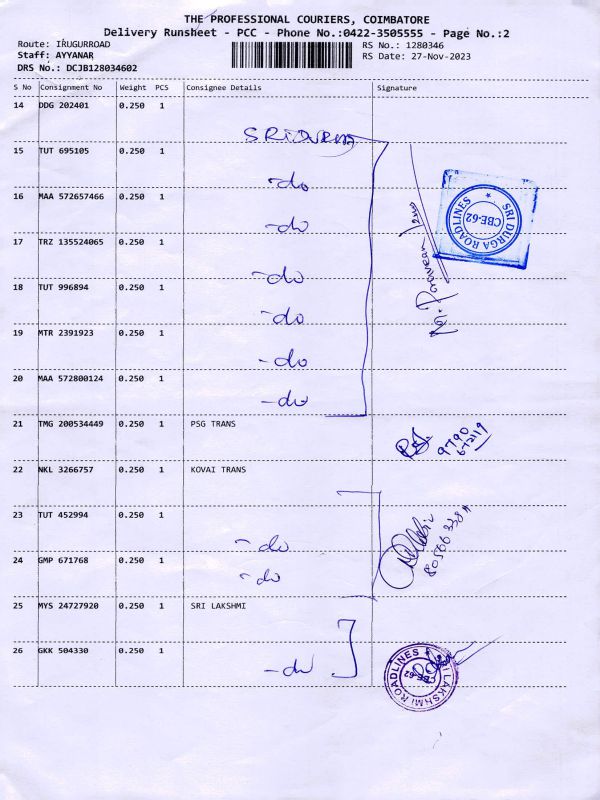 THE PROFESSIONAL COURIERS, COIMBATORE
Delivery Runsheet - PCC - Phone No.:0422-3505555 - Page No.:2
Route: IRUGURROAD
Staff: AYYANAR
DRS No.: DCJB128034602
RS No.: 1280346
RS Date: 27-Nov-2023
S No Consignment No Weight PCS Consignee Details Signature
14 DDG 202401 0.250 1
SRI DURGA
15 TUT 695105 0.250 1
-do
16 MAA 572657466 0.250 1
-do
17 TRZ 135524065 0.250 1
-do
18 TUT 996894 0.250 1
-do
19 MTR 2391923 0.250 1
-do
20 MAA 572800124 0.250 1
-do
SRI DURGA ROADLINES
CBE-62
21 TMG 200534449 0.250 1 PSG TRANS
9790
67219
22 NKL 3266757 0.250 1 KOVAI TRANS
23 TUT 452994 0.250 1
-do
24 GMP 671768 0.250 1
-do
25 MYS 24727920 0.250 1 SRI LAKSHMI
26 GKK 504330 0.250 1
-do
SRI LAKSHMI ROADLINES
CBE-62